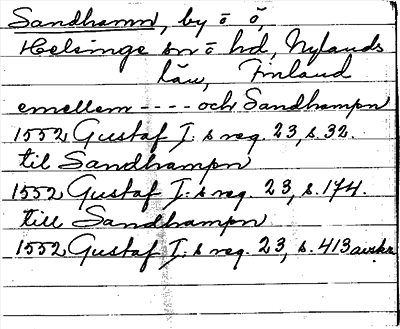 Sandhamn, by å ö,
Helsinge sn o hd, Nylands
län, Finland
emellem ---- och Sandhampn
1552 Gustaf I:s reg. 23, s. 32.
til Sandhampn
1552 Gustaf I:s reg. 23, s. 174.
till Sandhampn
1552 Gustaf I:s reg. 23, s. 413 avskr